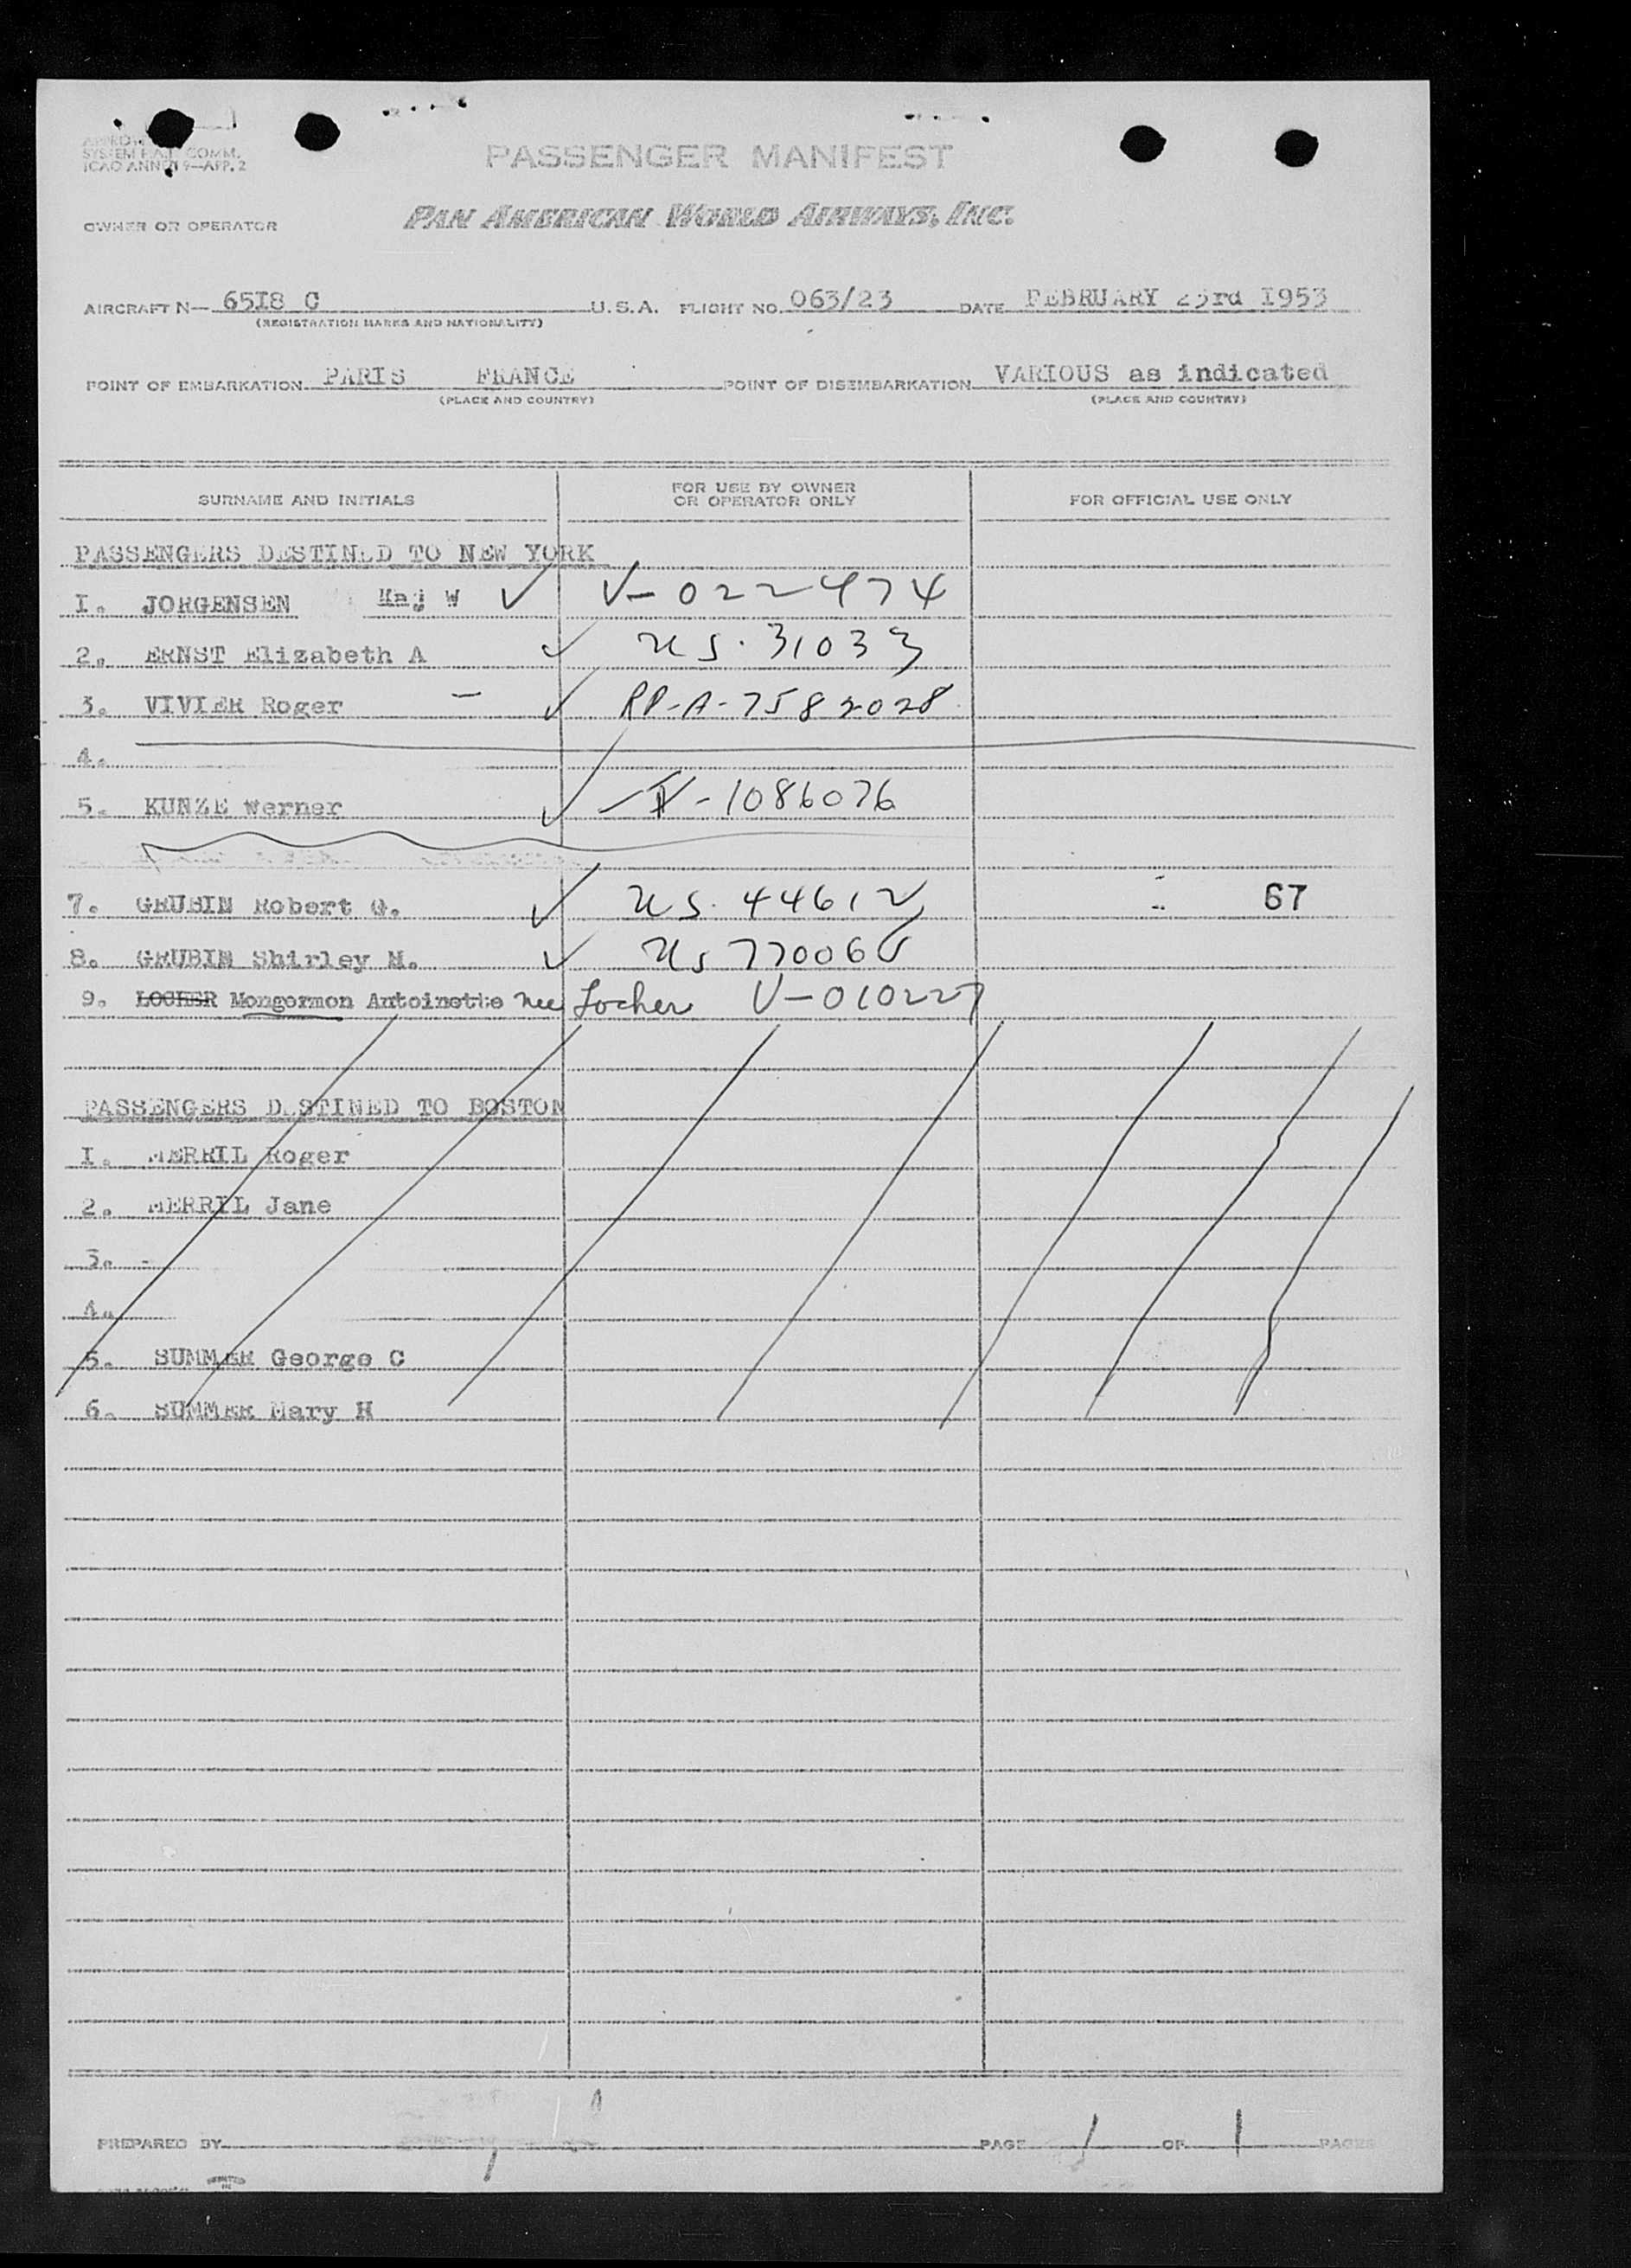 SYSTEM F.A.L. COMM.
ICAO ANNEX 9—APP. 2
PASSENGER MANIFEST
OWNER OR OPERATOR PAN AMERICAN WORLD AIRWAYS, INC.
AIRCRAFT N— 65I8 C U.S.A. FLIGHT NO. 063/23 DATE FEBRUARY 23rd I953
(REGISTRATION MARKS AND NATIONALITY)
POINT OF EMBARKATION PARIS FRANCE POINT OF DISEMBARKATION VARIOUS as indicated
(PLACE AND COUNTRY) (PLACE AND COUNTRY)
SURNAME AND INITIALS FOR USE BY OWNER OR OPERATOR ONLY FOR OFFICIAL USE ONLY
PASSENGERS DESTINED TO NEW YORK
I. JORGENSEN Kaj W ✓ V-022474
2. ERNST Elizabeth A ✓ US. 31033
3. VIVIER Roger – ✓ RP-A-7582028
4.
5. KUNZE Werner ✓ V-1086076
7. GRUBIN Robert G. ✓ US. 44612 67
8. GRUBIN Shirley M. ✓ US 77006
9. LOCHER Mongormon Antoinette nee Locher V-010227
PASSENGERS DESTINED TO BOSTON
I. MERRIL Roger
2. MERRIL Jane
3. -
4.
5. SUMMER George C
6. SUMMER Mary H
PREPARED BY PAGE 1 OF 1 PAGES